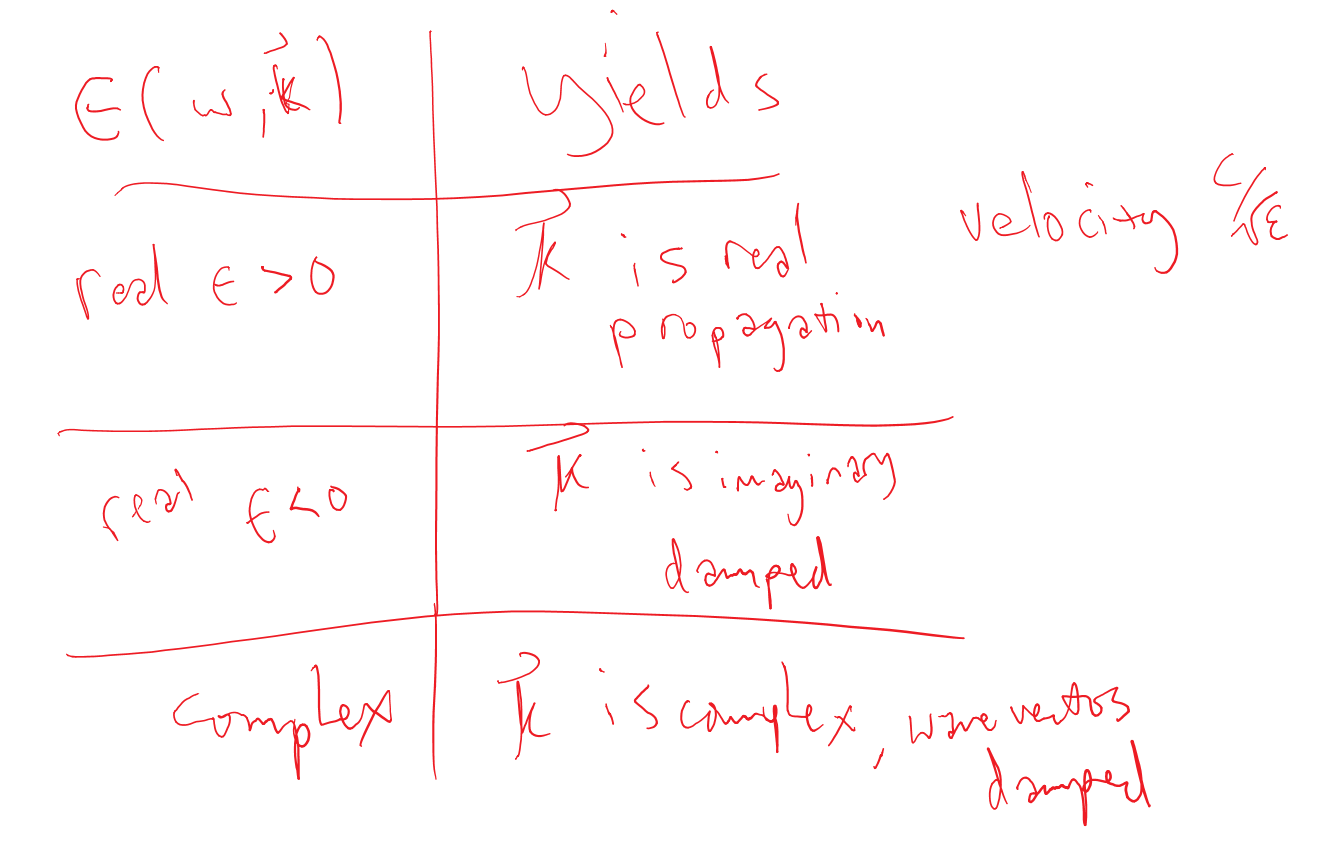 ϵ(ω, k⃗) yields
real ϵ > 0 k⃗ is real velocity c/√ε
propagation
real ϵ < 0 k⃗ is imaginary
damped
complex k⃗ is complex, wave vectors
damped